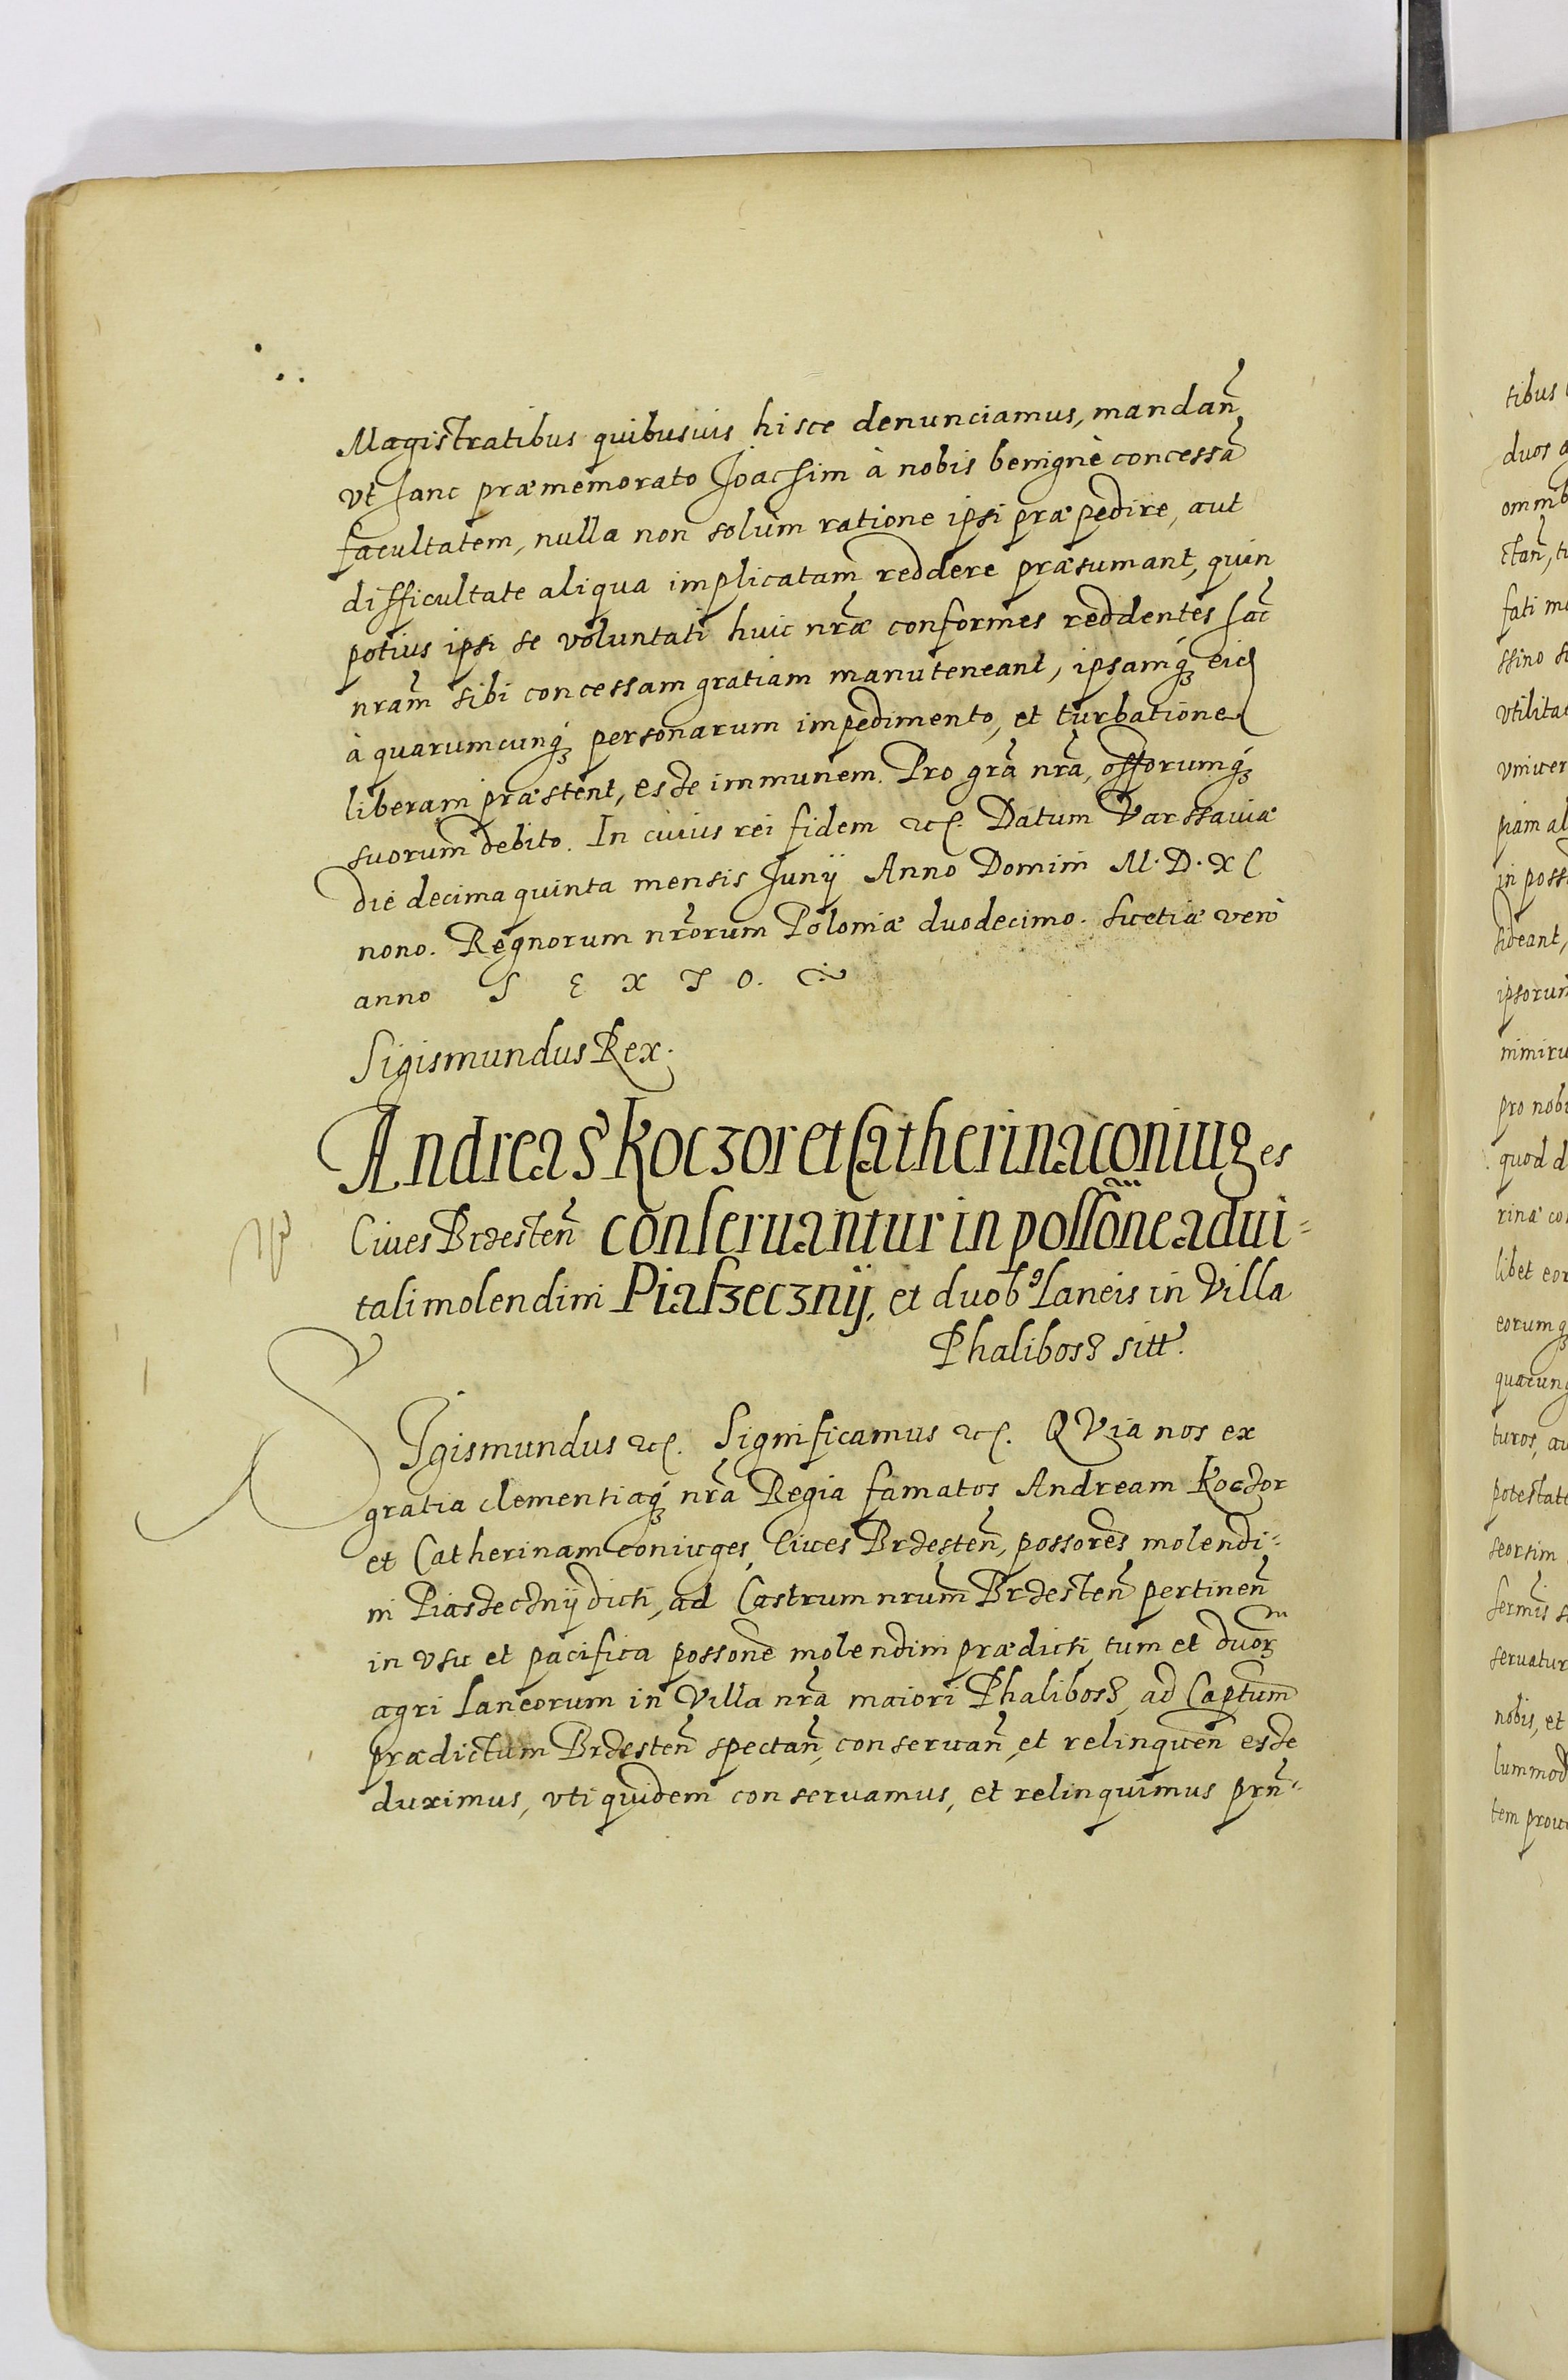 Magistratibus quibusuis hisce denunciamus, mandan̄
vt hanc præmemorato Ioachim à nobis benignè concessā
facultatem, nulla non solùm ratione ipsi præpedire, aut
difficultate aliqua implicatam reddere præsumant, quin
potius ipsi se voluntati huic nr̄æ conformes reddentes hāc
nram̄ sibi concessam gratiam manuteneant, ipsamq́ꝫ eid
à quarumcunq́ꝫ personarum impedimento, et turbatione
liberam præstent, esse immunem. Pro grā nrā, offorumq́ꝫ
suorum debito. In cuius rei fidem etc. Datum Varssauiæ
die decima quinta mensis Junij Anno Domini M·D·XC
nono. Regnorum nr̄orum Poloniæ duodecimo. Suetiæ verò
anno S E X T O.
Sigismundus Rex.
Andreas Koczor et Catherina coniuges
Ciues Brzesten̄ conseruantur in possōne adui=
tali molendini Piaszecznij, et duobꝰ Laneis in Villa
Phalibosz sitt.
SIgismundus etc. Significamus etc. QVia nos ex
gratia clementiaq́ꝫ nrā Regia famatos Andream Koczor
et Catherinam coniuges, Ciues Brzesten̄, possorēs molendi=
ni Piaszecznij dicti, ad Castrum nrum̄ Brzesten̄ pertinen̄
in vsu et pacifica possonē molendini prædicti, tum et duorꝫ
agri Laneorum in Villa nrā maiori Phalibosz, ad Captum̄
prædictum Brzesten̄ spectan̄, conseruan̄, et relinquen̄ esse
duximus, vti quidem conseruamus, et relinquimus prn̄=
tibus
duos a
omnib
ctan̄, tu
fati mo
ssino
vtilitat
vniuer
piam al
in poss
sideant,
ipsorum
nimiru
pro nobi
quod d
rinæ co
libet eor
eorumq
quæcunq
turos, au
potestate
seorsim
sermis
seruatur
nobis, et
lummod
tem prout